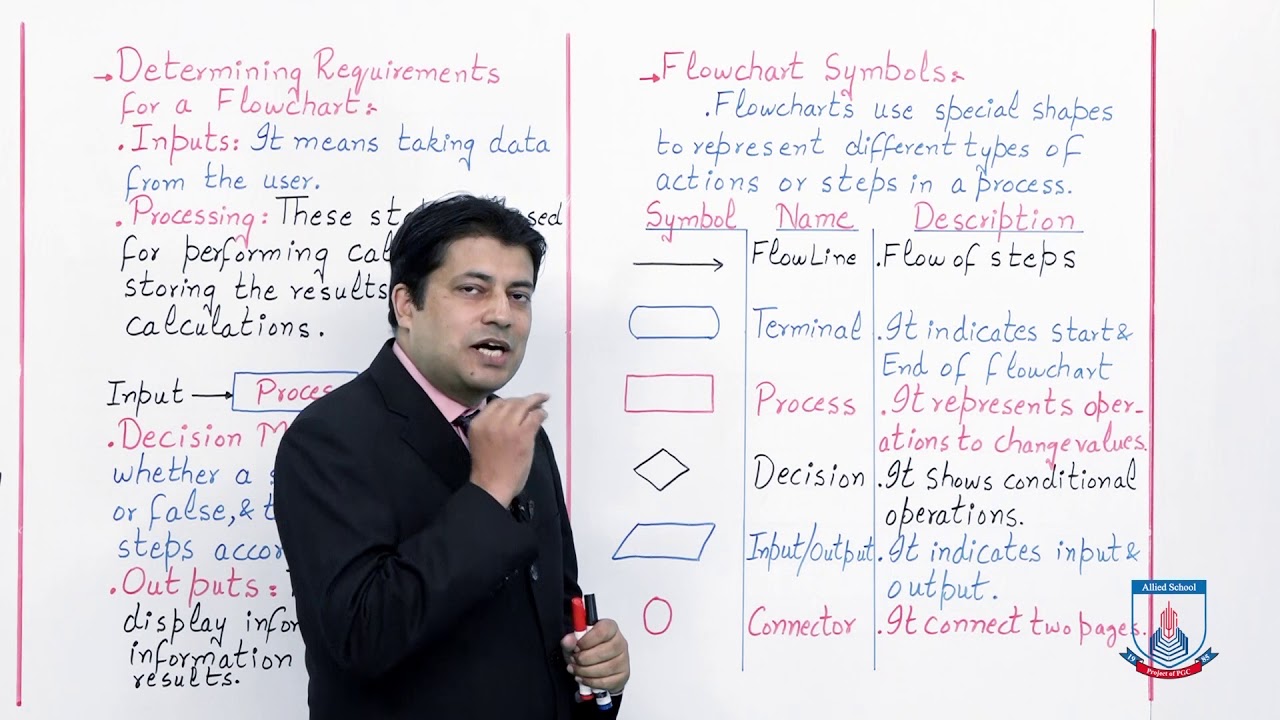 →Determining Requirements
for a Flowchart:
.Inputs: It means taking data
from the user.
.Processing: These
for performing
storing the results
calculations.
Input → Process
.Decision
whether a
or false, &
steps
.Outputs:
display
information
results.
→Flowchart Symbols:
.Flowcharts use special shapes
to represent different types of
actions or steps in a process.
Symbol Name Description
FlowLine .Flow of steps
Terminal .It indicates start &
End of flowchart
Process .It represents oper-
ations to change values.
Decision .It shows conditional
operations.
Input/Output .It indicates input &
output.
Connector .It connect two pages.
Allied School
1985
Project of PGC